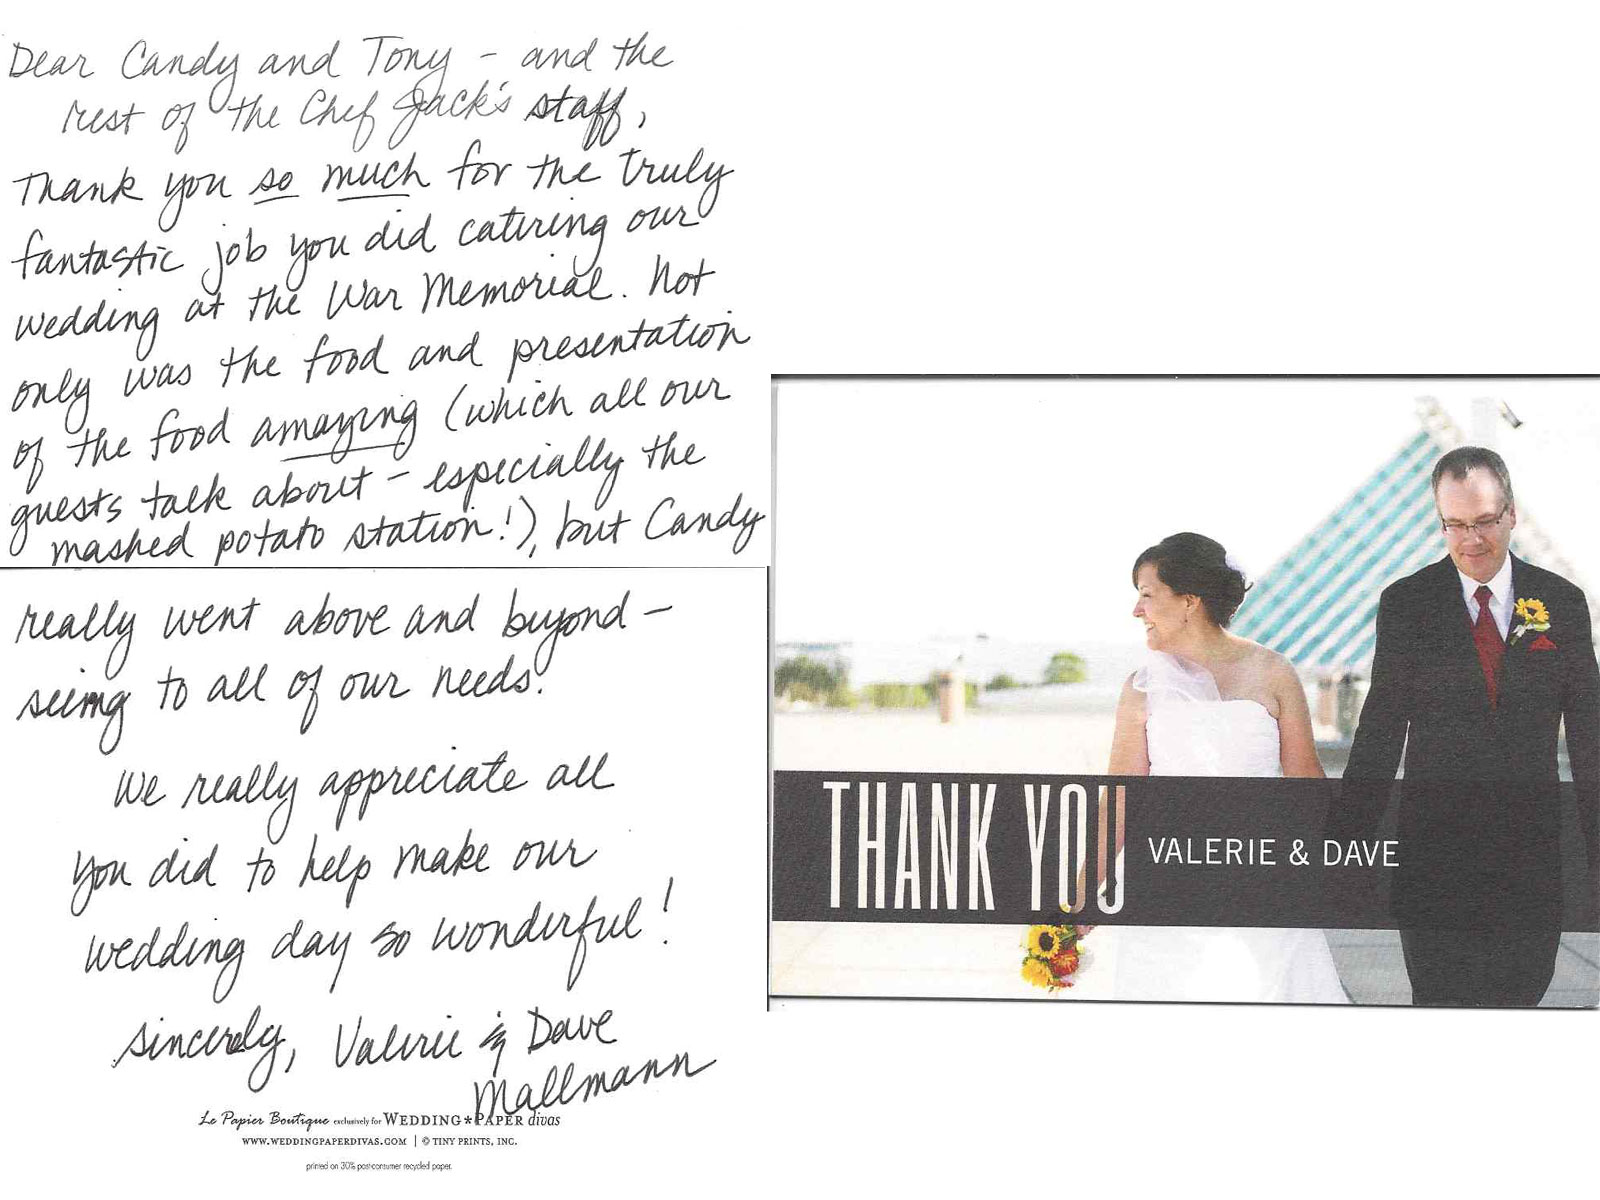 Dear Candy and Tony - and the
rest of the Chef Jack's staff,
Thank you so much for the truly
fantastic job you did catering our
wedding at the War Memorial. Not
only was the food and presentation
of the food amazing (which all our
guests talk about - especially the
mashed potato station!), but Candy
really went above and beyond -
seeing to all of our needs.
We really appreciate all
you did to help make our
wedding day so wonderful!
Sincerely, Valerie & Dave
Mallmann
Le Papier Boutique exclusively for WEDDING*PAPER divas
WWW.WEDDINGPAPERDIVAS.COM | © TINY PRINTS, INC.
printed on 30% post-consumer recycled paper.
THANK YOU VALERIE & DAVE